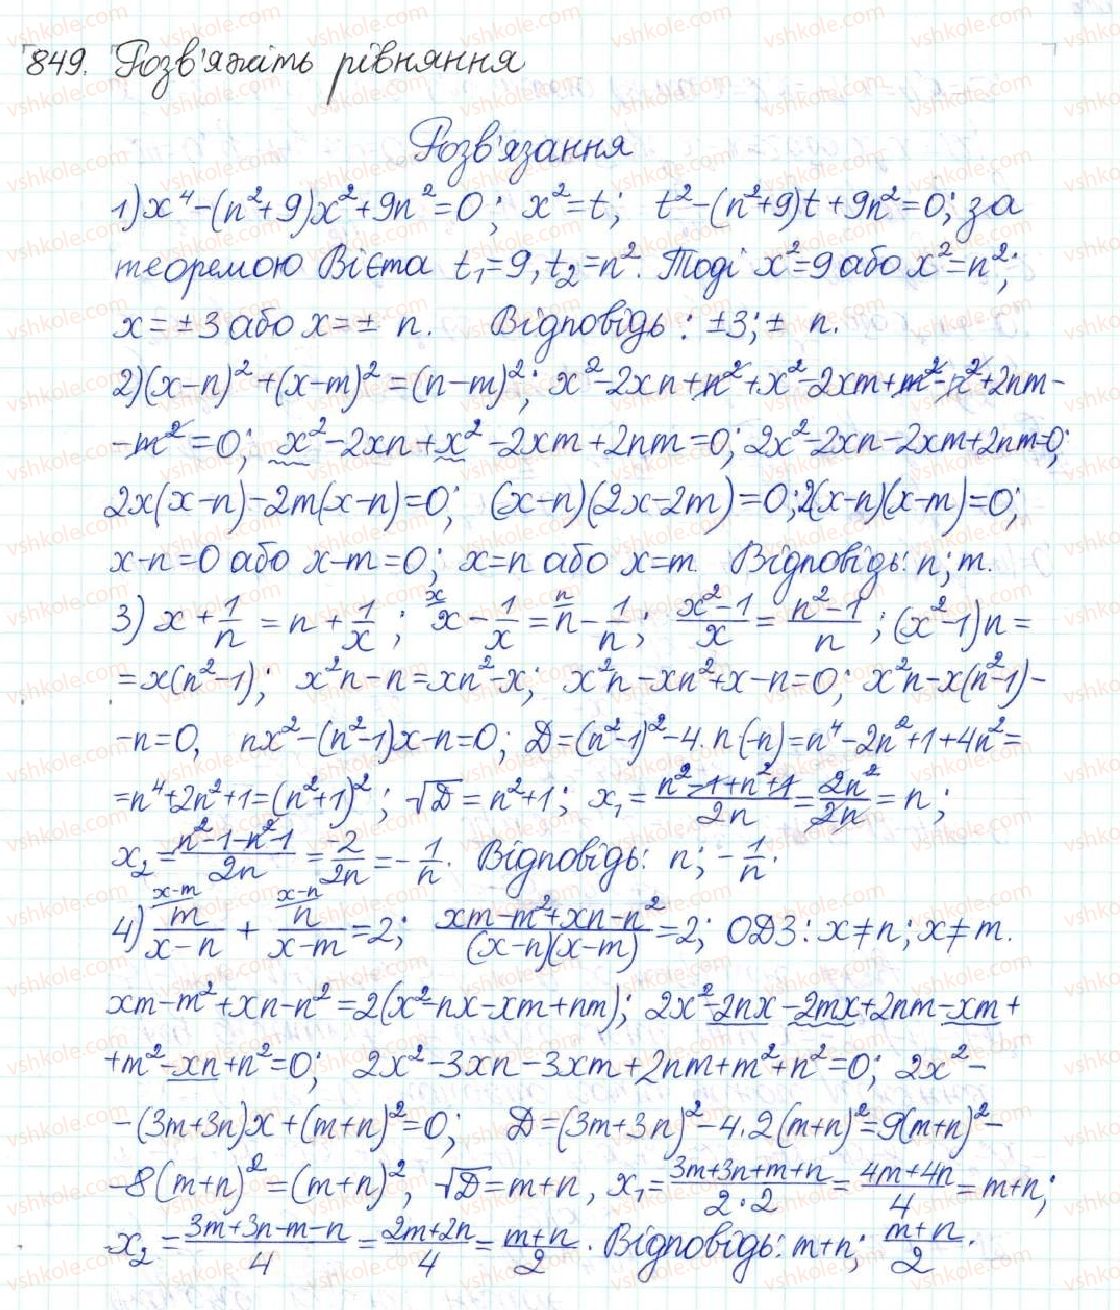 849. Розв'яжіть рівняння
Розв'язання
1) x⁴-(n²+9)x²+9n²=0; x²=t; t²-(n²+9)t+9n²=0; за
теоремою Вієта t₁=9, t₂=n². Тоді x²=9 або x²=n²;
x=±3 або x=± n. Відповідь: ±3; ± n.
2)(x-n)²+(x-m)²=(n-m)²; x²-2xn+n²+x²-2xm+m²-n²+2nm-
-m²=0; x²-2xn+x²-2xm+2nm=0; 2x²-2xn-2xm+2nm=0;
2x(x-n)-2m(x-n)=0; (x-n)(2x-2m)=0; 2(x-n)(x-m)=0;
x-n=0 або x-m=0; x=n або x=m. Відповідь: n; m.
3) x+1/n=n+1/x; x/x-1/x=n/n-1/n; (x²-1)/x=(n²-1)/n; (x²-1)n=
=x(n²-1); x²n-n=xn²-x; x²n-xn²+x-n=0; x²n-x(n²-1)-
-n=0, nx²-(n²-1)x-n=0; D=(n²-1)²-4·n(-n)=n⁴-2n²+1+4n²=
=n⁴+2n²+1=(n²+1)²; √D=n²+1; x₁=(n²-1+n²+1)/2n=2n²/2n=n;
x₂=(n²-1-n²-1)/2n=-2/2n=-1/n. Відповідь: n; -1/n.
4) x-m/ m/(x-n) + x-n/ n/(x-m)=2; (xm-m²+xn-n²)/((x-n)(x-m))=2; ОДЗ: x≠n; x≠m.
xm-m²+xn-n²=2(x²-nx-xm+nm); 2x²-2nx-2mx+2nm-xm+
+m²-xn+n²=0; 2x²-3xn-3xm+2nm+m²+n²=0; 2x²-
-(3m+3n)x+(m+n)²=0; D=(3m+3n)²-4·2(m+n)²=9(m+n)²-
-8(m+n)²=(m+n)², √D=m+n, x₁=(3m+3n+m+n)/2·2=(4m+4n)/4=m+n;
x₂=(3m+3n-m-n)/4=(2m+2n)/4=(m+n)/2. Відповідь: m+n; (m+n)/2.